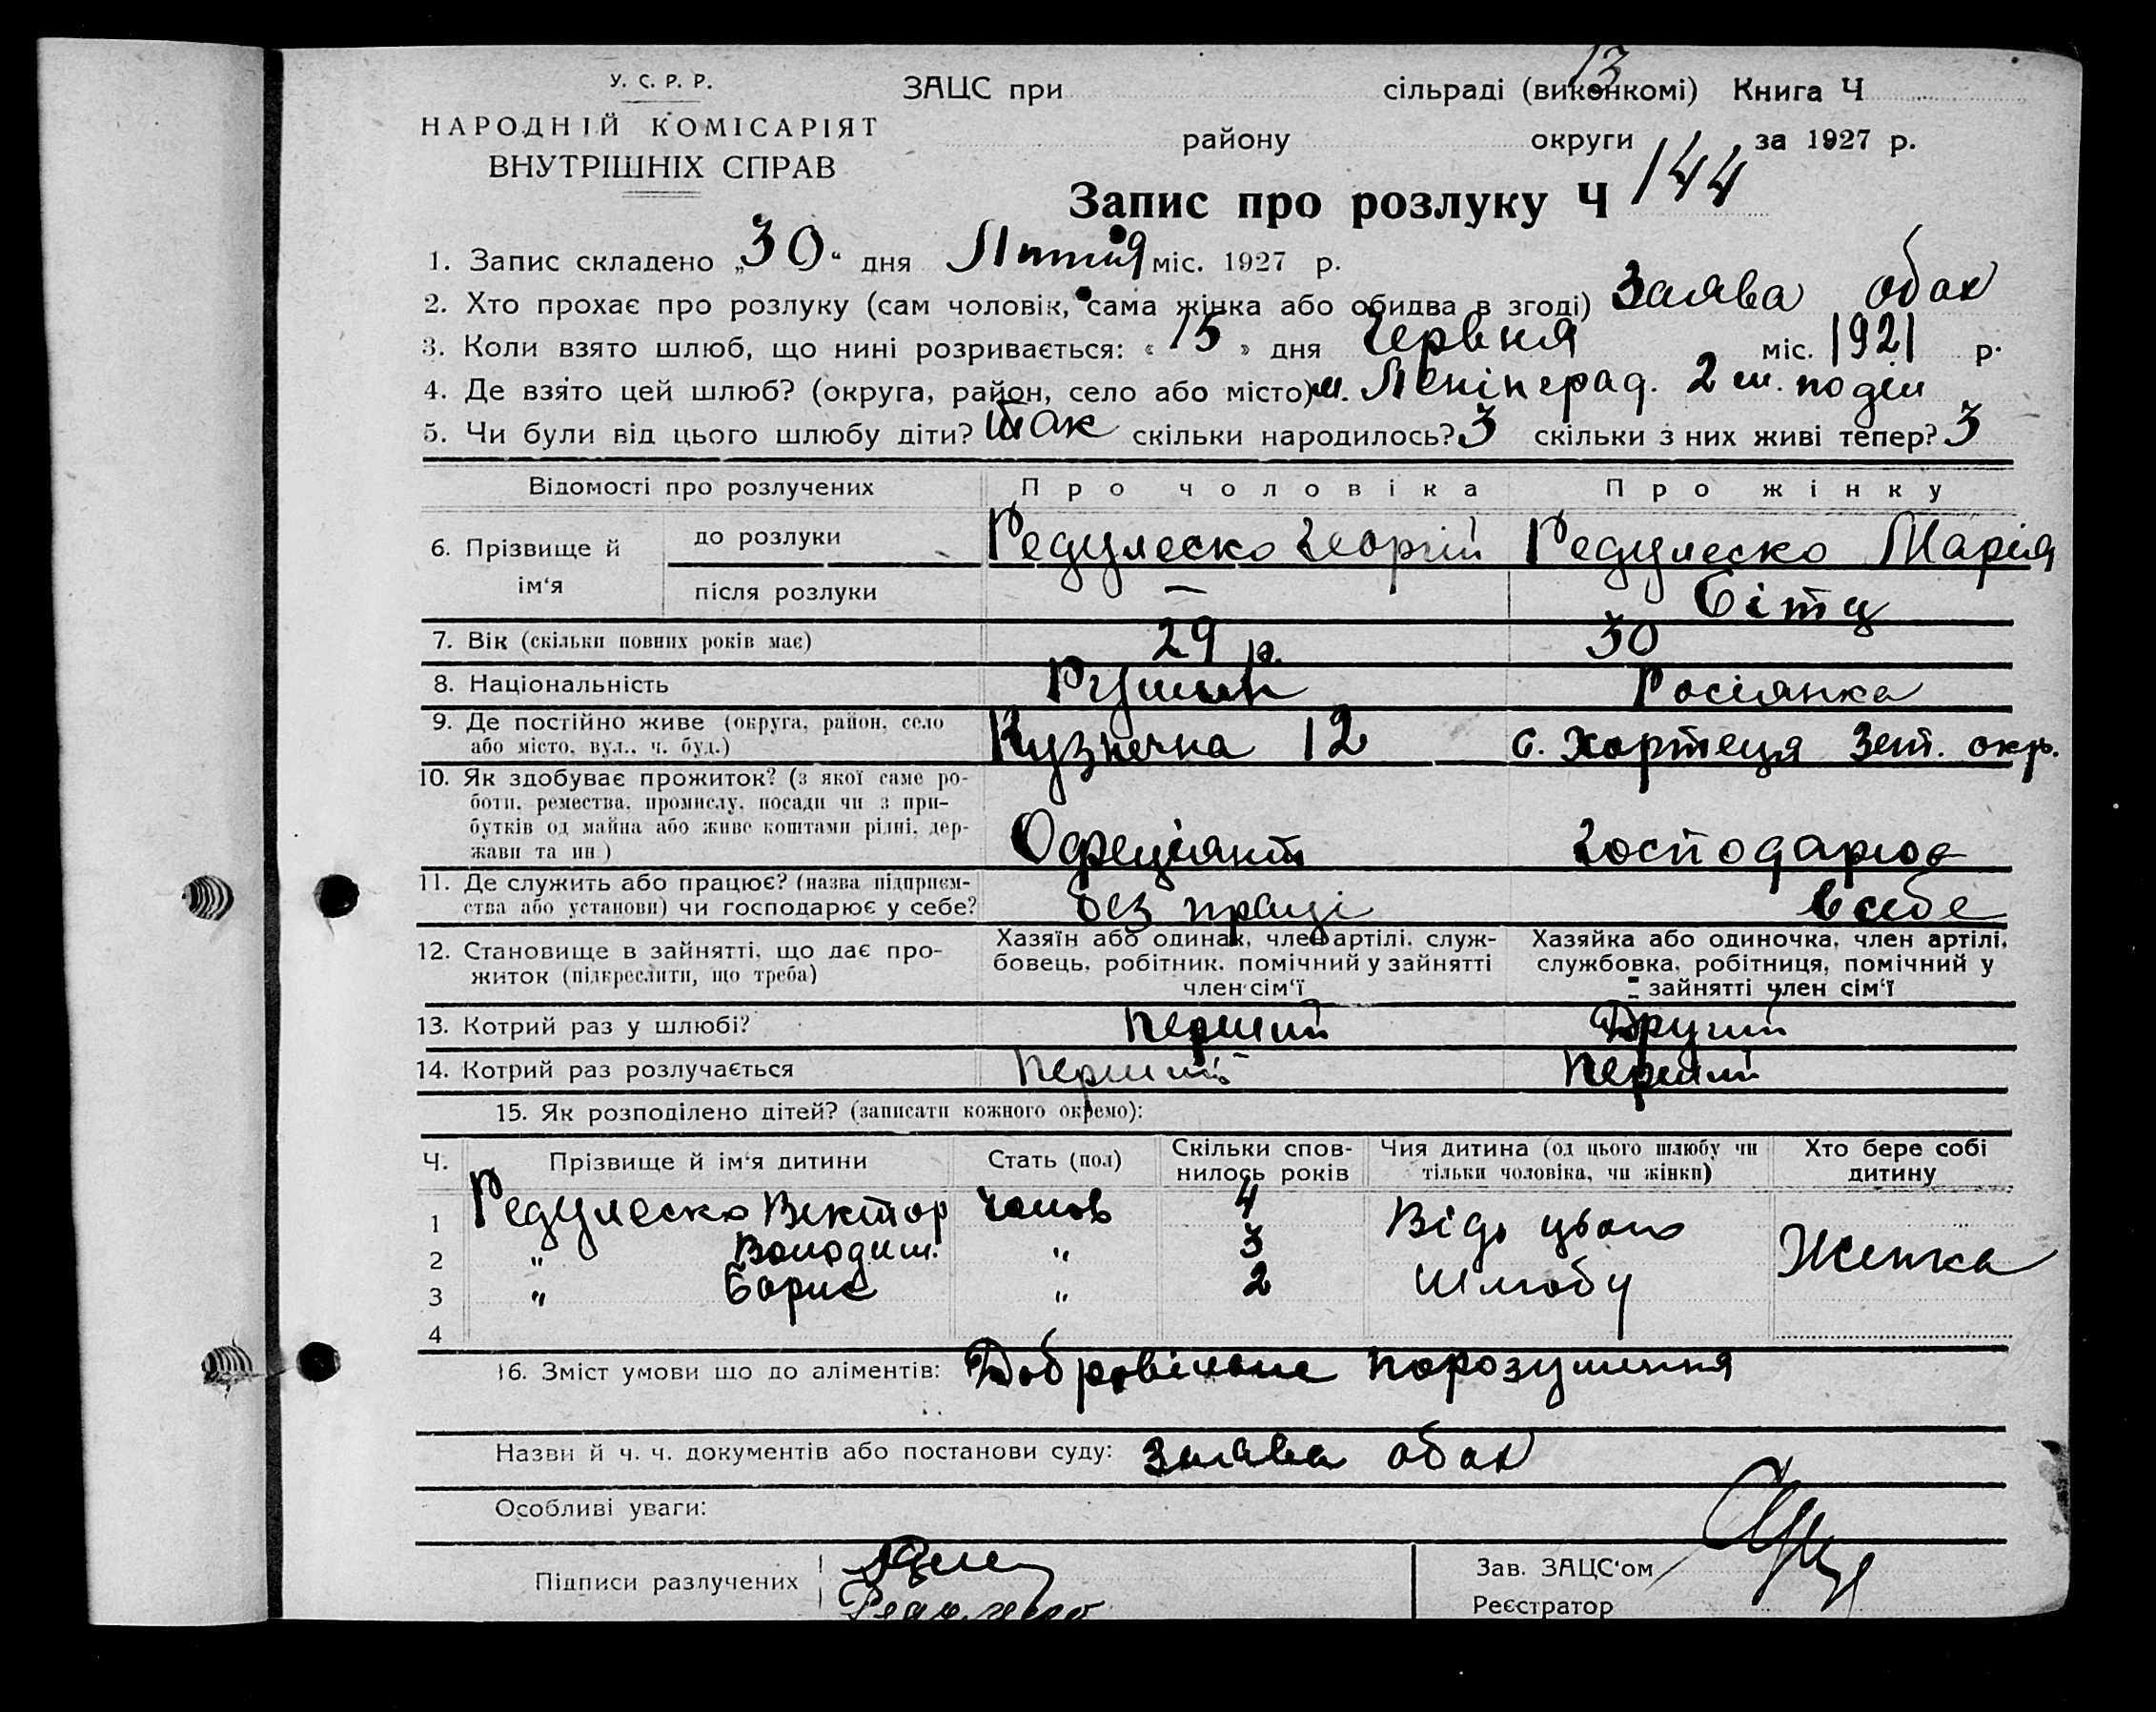 13
У. С. Р. Р.
НАРОДНІЙ КОМІСАРІЯТ
ВНУТРІШНІХ СПРАВ
ЗАЦС при сільраді (виконкомі) Книга Ч
району округи за 1927 р.
Запис про розлуку Ч 144
1. Запис складено „30“ дня міс. 1927 р.
2. Хто прохає про розлуку (сам чоловік, сама жінка або обидва в згоді) Заява обох
3. Коли взято шлюб, що нині розривається: « 15 » дня Червня міс. 1921 р.
4. Де взято цей шлюб? (округа, район, село або місто) м. Ленінград. 2
5. Чи були від цього шлюбу діти? так скільки народилось? 3 скільки з них живі тепер? 3
Відомості про розлучених Про чоловіка Про жінку
6. Прізвище й ім‘я до розлуки Редулеско Георгій Редулеско Марія
після розлуки —
7. Вік (скільки повних років має) 29 р. 30
8. Національність Румин Росіянка
9. Де постійно живе (округа, район, село або місто, вул., ч. буд.) Кузнечна 12 с. Хортеця окр.
10. Як здобуває прожиток? (з якої саме роботи, ремества, промислу, посади чи з прибутків од майна або живе коштами рідні, держави та ин) Офеціянт Господарює
11. Де служить або працює? (назва підприємства або установи) чи господарює у себе? без праці в себе
12. Становище в зайнятті, що дає прожиток (підкреслити, що треба) Хазяїн або одинак, член артілі, службовець, робітник, помічний у зайнятті член сім‘ї Хазяйка або одиночка, член артілі, службовка, робітниця, помічний у зайнятті член сім‘ї
13. Котрий раз у шлюбі? перший Другий
14. Котрий раз розлучається перший перший
15. Як розподілено дітей? (записати кожного окремо):
Ч. Прізвище й ім‘я дитини Стать (пол) Скільки сповнилось років Чия дитина (од цього шлюбу чи тільки чоловіка, чи жінки) Хто бере собі дитину
1 Редулеско Віктор чолов 4 Відь цього
2 „ Володим. „ 3 Женка
3 „ Борис „ 2 шлюбу
4
16. Зміст умови що до аліментів: Добровільне порозуміння
Назви й ч. ч. документів або постанови суду: заява обох
Особливі уваги:
Підписи разлучених
Зав. ЗАЦС‘ом
Реєстратор